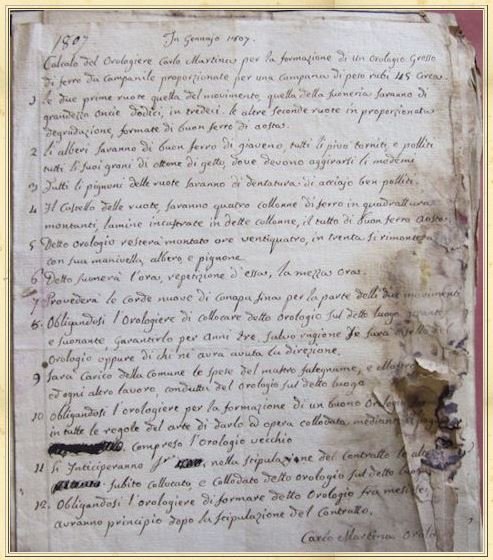 1807
In Gennajo 1807.
Calcolo del Orologiere Carlo Martina per la formazione di un Orologio Grosso
di ferro da Campanile proporzionale per una campana di peso rubi 45 Circa.
1 le due prime ruote quella del movimento, quella della suoneria saranno di
grandezza oncie dodici, in tredeci. le altre seconde ruote in proporzionata
degradazione, formate di buon ferro di aosta.
2 li alberi saranno di buon ferro di giaveno, tutti li pivò torniti, e politti
tutti li suoi grani di ottone di getto, dove devono aggirarsi li medemi
3 Tutti li pignoni delle ruote saranno di dentatura di acciajo ben politti.
4 Il Castello delle ruote, saranno quattro collonne di ferro in quadrattura
montanti, lamine incastrate in dette collonne, il tutto di buon ferro Aosta.
5 Detto orologio resterà montato ore ventiquatro, in trenta si rimonterà
con sua manivella, albero e pignone.
6 Detto suonerà l'ora, repetizione d'essa, la mezza ora.
7 Provederà le corde nuove di canapa fina per la parte delli due movimenti
8. Obligandosi l'Orologiere di collocare detto Orologio sul detto luogo
e suonante Garantirlo per Anni tre. salvo ragione
Orologio oppure di chi ne avrà avuta la direzione.
9 Sarà Carico della Comune le spese del mastro falegname, e
ed ogni altro lavoro, condutta del Orologio sul detto luogo
10 Obligandosi l'orologiere per la formazione di un buono Orologio
in tutte le regole del arte di darlo ad opera collodata mediante
compreso l'Orologio vecchio
11 Si Anticiperanno nella stipulazione del Contratto le altre
subito collocato, e Collodato detto Orologio sul detto luogo
12. Obligandosi l'Orologiere di formare detto Orologio fra mesi sei,
avranno principio dopo la stipulazione del Contratto.
Carlo Martina